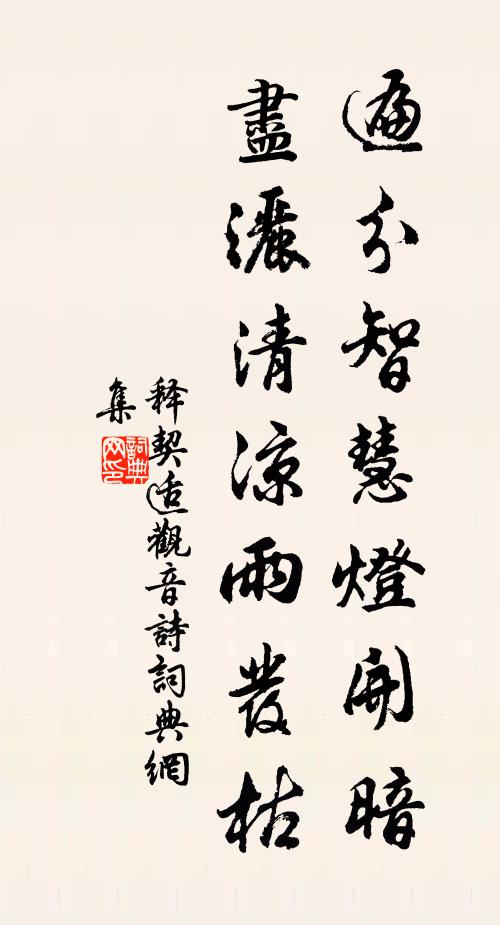 遍分智慧燈開暗
盡灑清涼雨發枯
释契适觀音詩詞典網
集
詞典网印